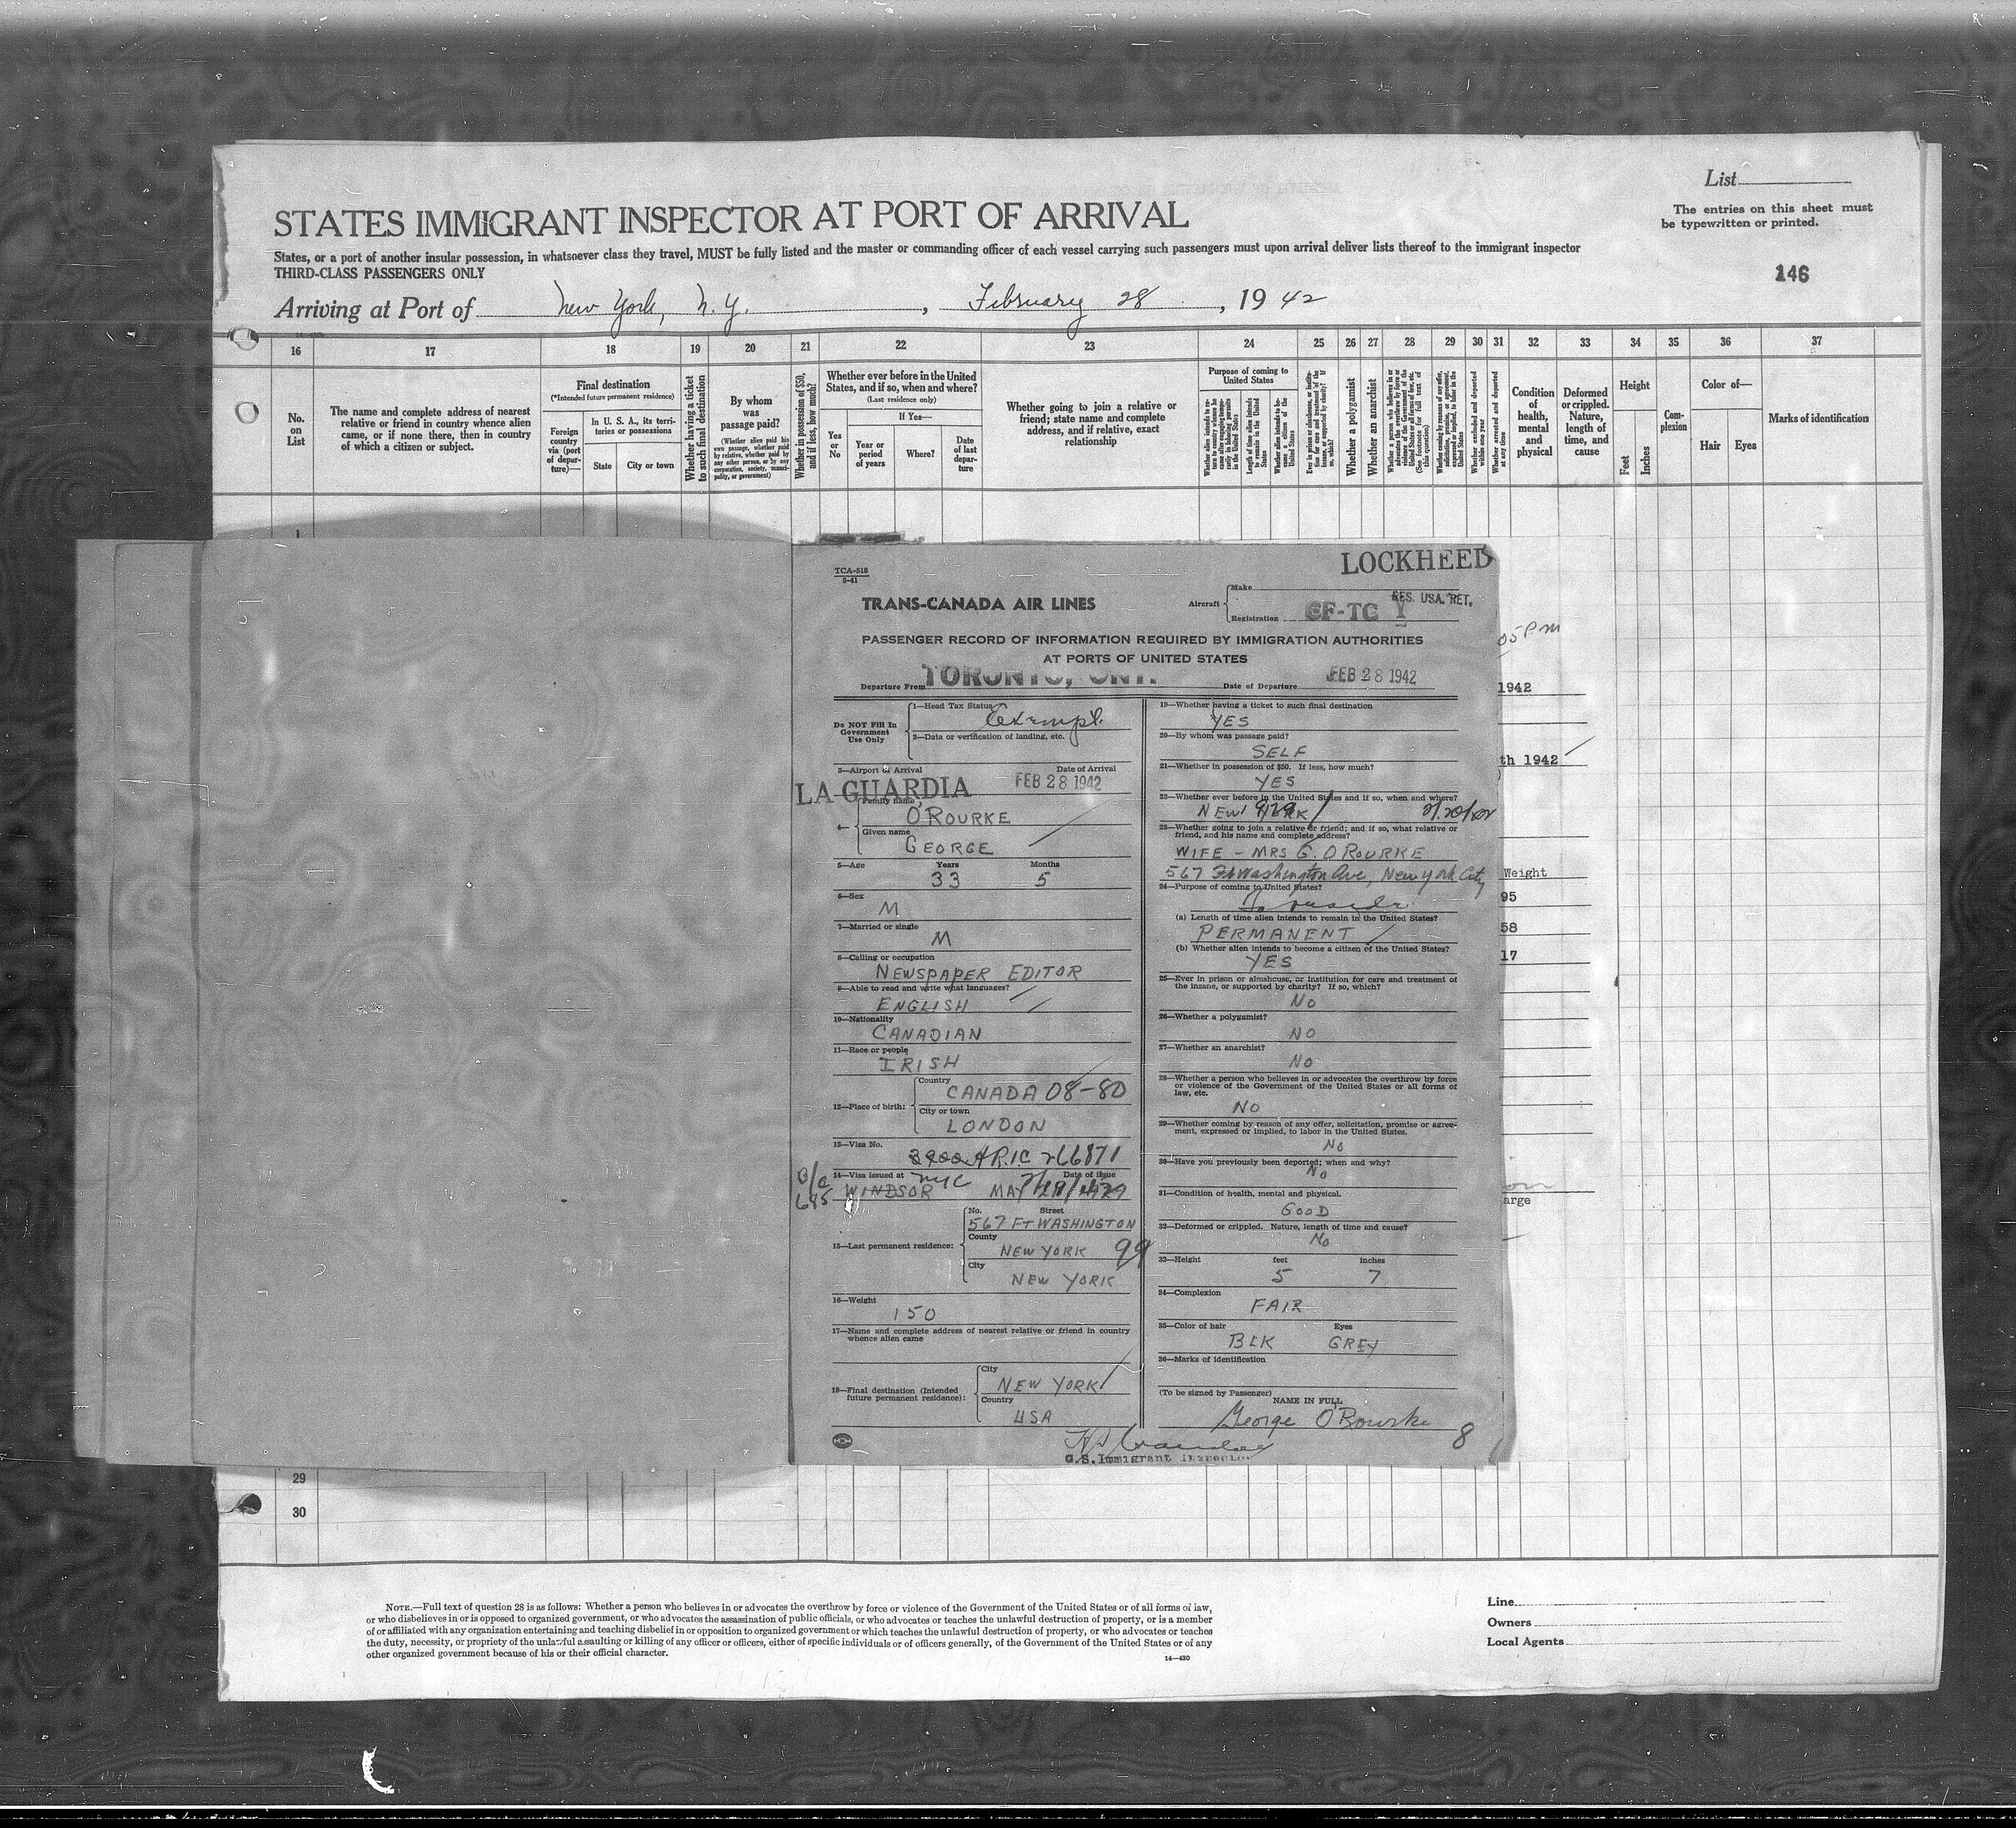 List
STATES IMMIGRANT INSPECTOR AT PORT OF ARRIVAL
The entries on this sheet must
be typewritten or printed.
States, or a port of another insular possession, in whatsoever class they travel, MUST be fully listed and the master or commanding officer of each vessel carrying such passengers must upon arrival deliver lists thereof to the immigrant inspector
THIRD-CLASS PASSENGERS ONLY
146
Arriving at Port of New York, N.Y. , February 28 , 19 42
16 17 18 19 20 21 22 23 24 25 26 27 28 29 30 31 32 33 34 35 36 37
No.
on
List
The name and complete address of nearest
relative or friend in country whence alien
came, or if none there, then in country
of which a citizen or subject.
Final destination
(*Intended future permanent residence)
Foreign
country
via (port
of depar-
ture)—
In U. S. A., its terri-
tories or possessions
State City or town
Whether having a ticket
to such final destination
By whom
was
passage paid?
(Whether alien paid his
own passage, whether paid
by relative, whether paid by
any other person, or by any
corporation, society, munici-
pality, or government)
Whether in possession of $50,
and if less, how much?
Whether ever before in the United
States, and if so, when and where?
(Last residence only)
Yes
or
No
If Yes—
Year or
period
of years
Where?
Date
of last
depar-
ture
Whether going to join a relative or
friend; state name and complete
address, and if relative, exact
relationship
Purpose of coming to
United States
Length of time alien intends
to remain in the United
States
Whether a polygamist
Whether an anarchist
Whether excluded and deported
within one year
Whether arrested and deported
at any time
Condition
of
health,
mental
and
physical
Deformed
or crippled.
Nature,
length of
time, and
cause
Height
Feet
Inches
Com-
plexion
Color of—
Hair Eyes
Marks of identification
1
LOCKHEED
TCA-518
5-41
TRANS-CANADA AIR LINES
Aircraft
Make
RES. USA. RET.
Registration CF-TC Y
PASSENGER RECORD OF INFORMATION REQUIRED BY IMMIGRATION AUTHORITIES
AT PORTS OF UNITED STATES
Departure From TORONTO, ONT.
Date of Departure FEB 28 1942
Do NOT Fill In
Government
Use Only
1—Head Tax Status Exempt
2—Data or verification of landing, etc.
3—Airport of Arrival Date of Arrival
LA GUARDIA FEB 28 1942
4—
Family name
O'ROURKE
Given name
GEORGE
5—Age Years Months
33 5
6—Sex
M
7—Married or single
M
8—Calling or occupation
NEWSPAPER EDITOR
9—Able to read and write what languages?
ENGLISH
10—Nationality
CANADIAN
11—Race or people
IRISH
12—Place of birth:
Country
CANADA 08-80
City or town
LONDON
13—Visa No.
AR.IC 266871
14—Visa issued at NYC Date of Issue
WINDSOR
15—Last permanent residence:
No. Street
567 FT WASHINGTON
County
NEW YORK 99
City
NEW YORK
16—Weight
150
17—Name and complete address of nearest relative or friend in country
whence alien came
18—Final destination (Intended
future permanent residence):
City
NEW YORK
Country
USA
19—Whether having a ticket to such final destination
YES
20—By whom was passage paid?
SELF
21—Whether in possession of $50. If less, how much?
YES
22—Whether ever before in the United States and if so, when and where?
NEW YORK
23—Whether going to join a relative or friend; and if so, what relative or
friend, and his name and complete address?
WIFE - MRS G. O ROURKE
567 Ft Washington Ave, New York City
24—Purpose of coming to United States?
To reside
(a) Length of time alien intends to remain in the United States?
PERMANENT
(b) Whether alien intends to become a citizen of the United States?
YES
25—Ever in prison or almshouse, or institution for care and treatment of
the insane, or supported by charity? If so, which?
NO
26—Whether a polygamist?
NO
27—Whether an anarchist?
NO
28—Whether a person who believes in or advocates the overthrow by force
or violence of the Government of the United States or all forms of
law, etc.
NO
29—Whether coming by reason of any offer, solicitation, promise or agree-
ment, expressed or implied, to labor in the United States.
NO
30—Have you previously been deported; when and why?
NO
31—Condition of health, mental and physical.
GOOD
32—Deformed or crippled. Nature, length of time and cause?
NO
33—Height feet inches
5 7
34—Complexion
FAIR
35—Color of hair Eyes
BLK GREY
36—Marks of identification
(To be signed by Passenger)
NAME IN FULL
George O'Rourke
8
U.S. Immigrant Inspector
05 Pm
1942
th 1942
Weight
95
58
17
arge
29
30
NOTE.—Full text of question 28 is as follows: Whether a person who believes in or advocates the overthrow by force or violence of the Government of the United States or of all forms of law,
or who disbelieves in or is opposed to organized government, or who advocates the assassination of public officials, or who advocates or teaches the unlawful destruction of property, or is a member
of or affiliated with any organization entertaining and teaching disbelief in or opposition to organized government or which teaches the unlawful destruction of property, or who advocates or teaches
the duty, necessity, or propriety of the unlawful assaulting or killing of any officer or officers, either of specific individuals or of officers generally, of the Government of the United States or of any
other organized government because of his or their official character.
14—430
Line
Owners
Local Agents